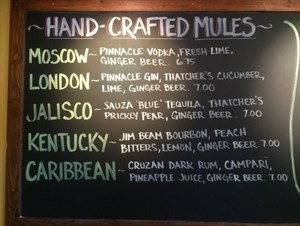 ~HAND-CRAFTED MULES~
MOSCOW~ PINNACLE VODKA, FRESH LIME,
GINGER BEER. 6.75
LONDON~ PINNACLE GIN, THATCHER'S CUCUMBER,
LIME, GINGER BEER. 7.00
JALISCO~ SAUZA 'BLUE' TEQUILA, THATCHER'S
PRICKLY PEAR, GINGER BEER. 7.00
KENTUCKY~ JIM BEAM BOURBON, PEACH
BITTERS, LEMON, GINGER BEER. 7.00
CARIBBEAN~ CRUZAN DARK RUM, CAMPARI,
PINEAPPLE JUICE, GINGER BEER. 7.00